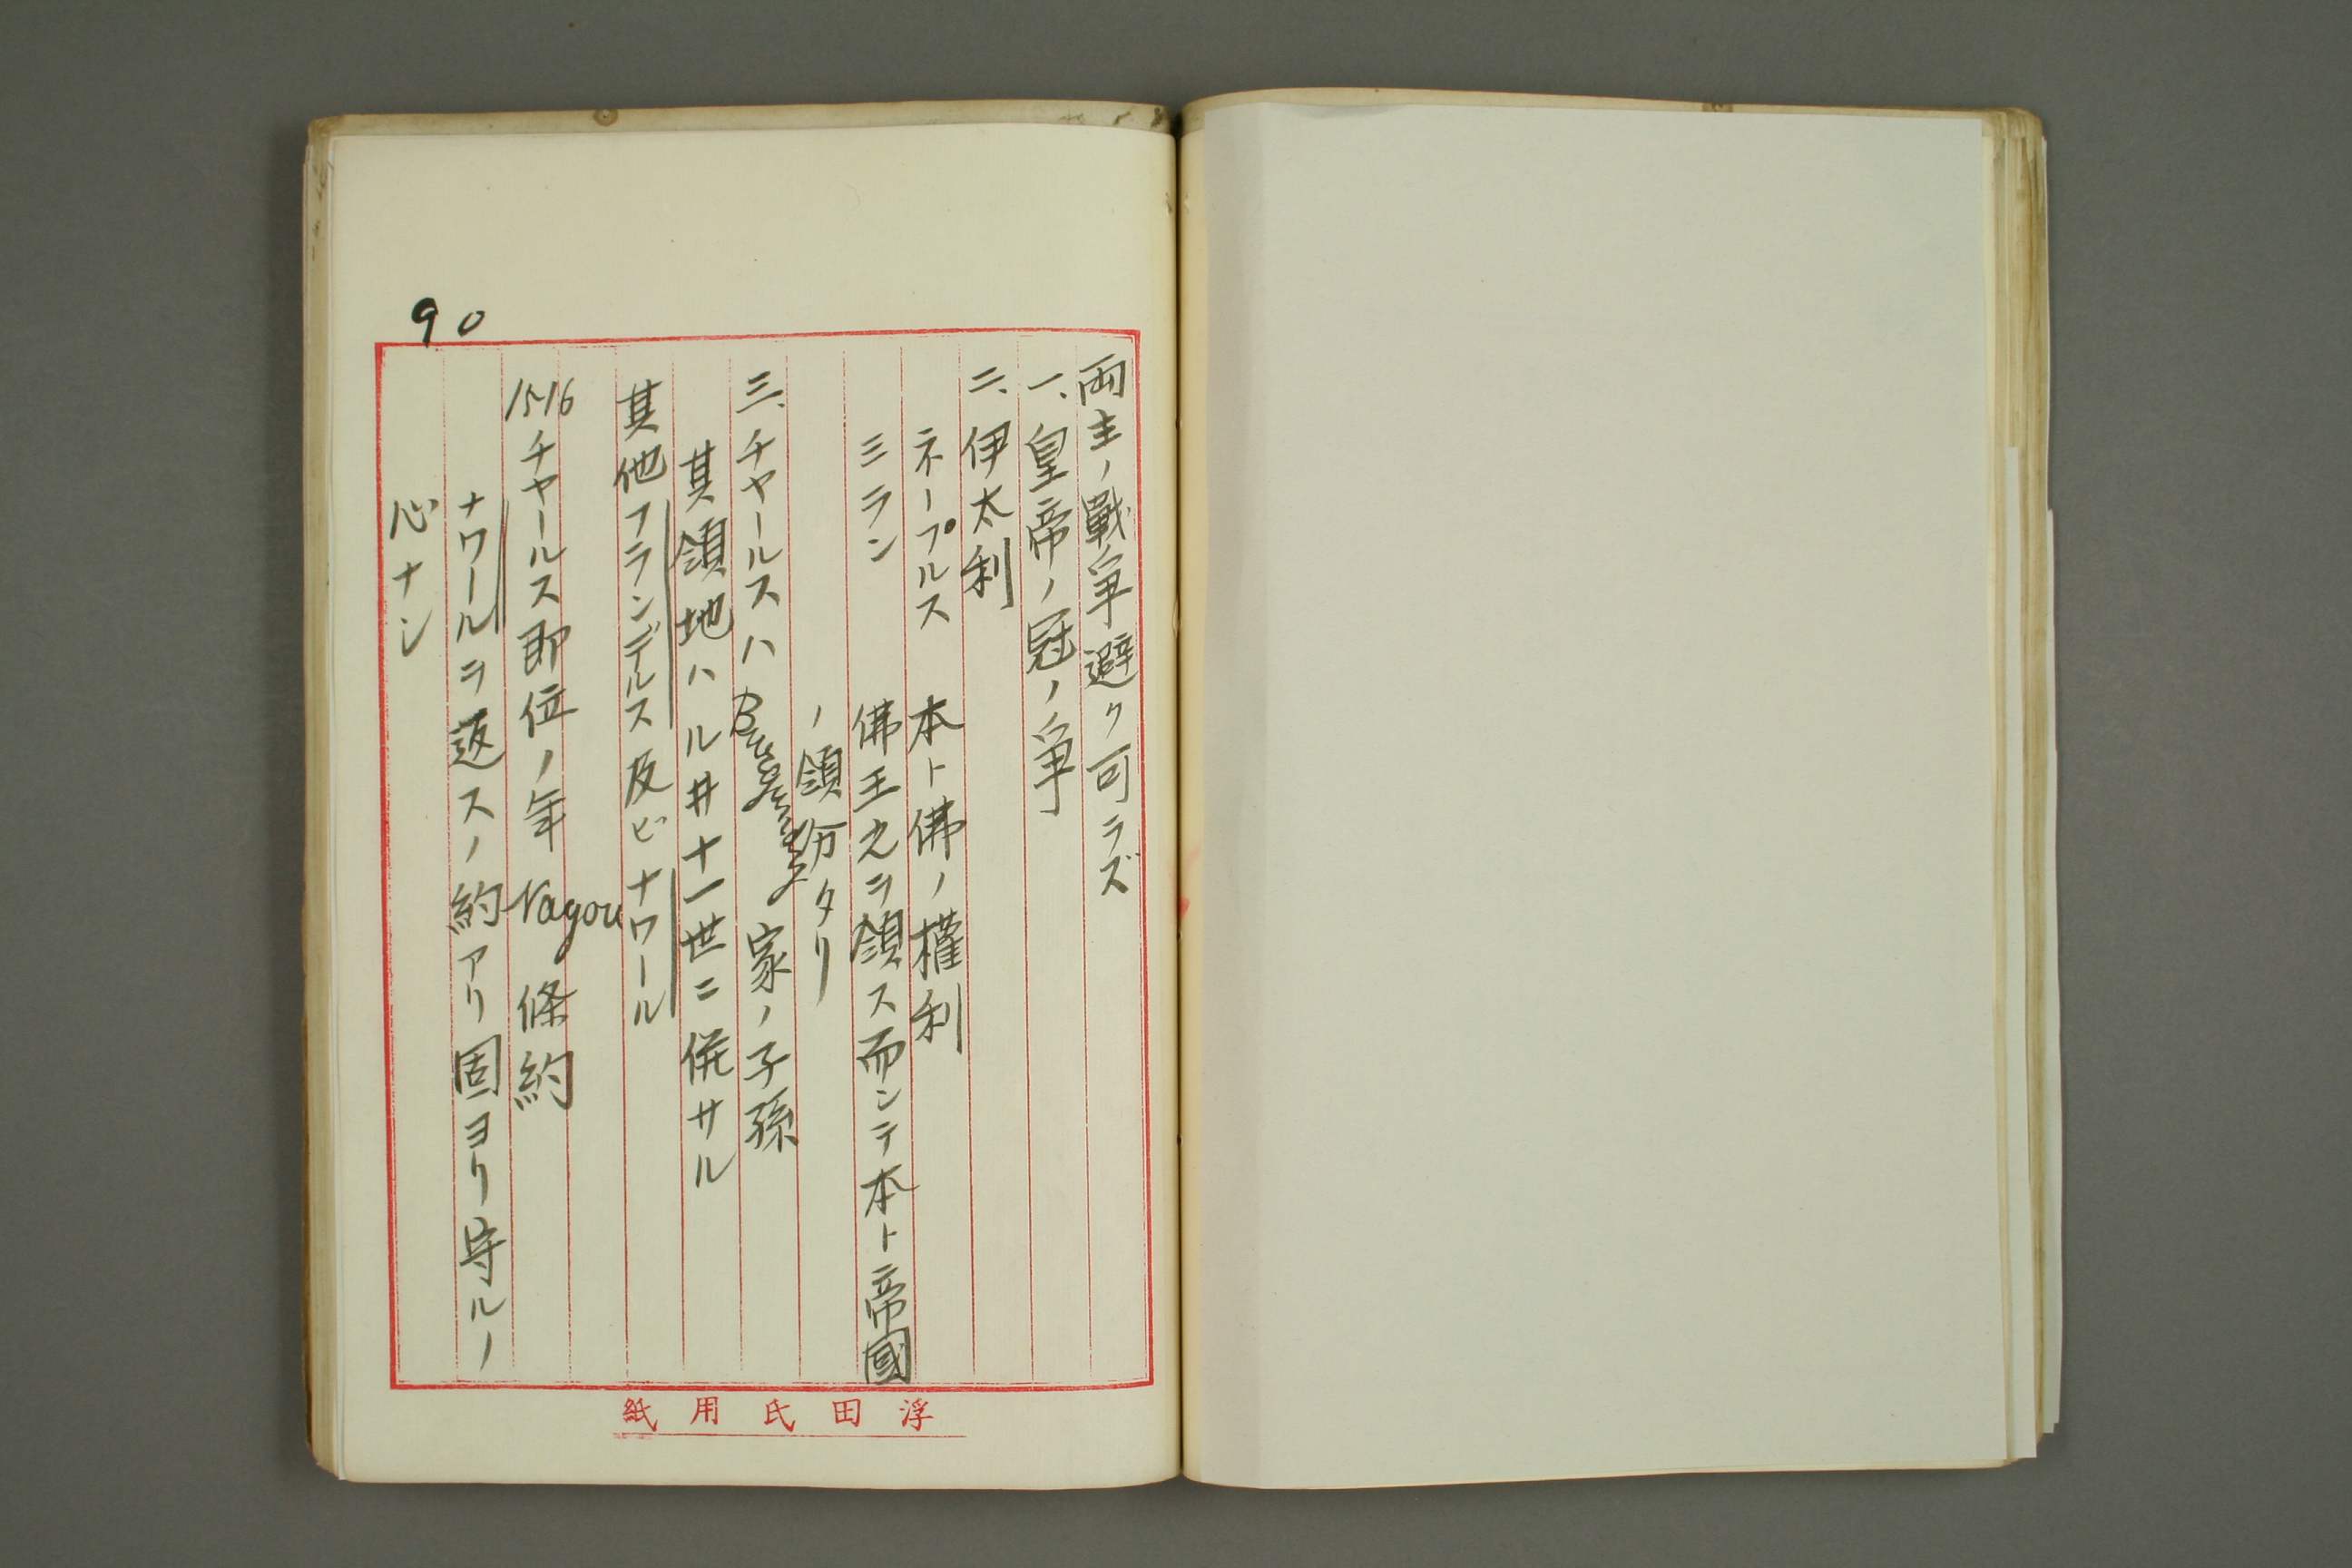 90
両主ノ戰争避ク可ラズ
一、皇帝ノ冠ノ争
二、伊太利
ネープルス 本ト佛ノ權利
ミラン 佛王之ヲ領ス而シテ本ト帝國
ノ領分タリ
三、チャールスハ Burgundy 家ノ子孫
其領地ハル井十一世ニ併サル
其他フランデルス及ビナワール
1516チャールス即位ノ年 Nagou 條約
ナワールヲ返スノ約アリ固ヨリ守ルノ
心ナシ
浮田氏用紙